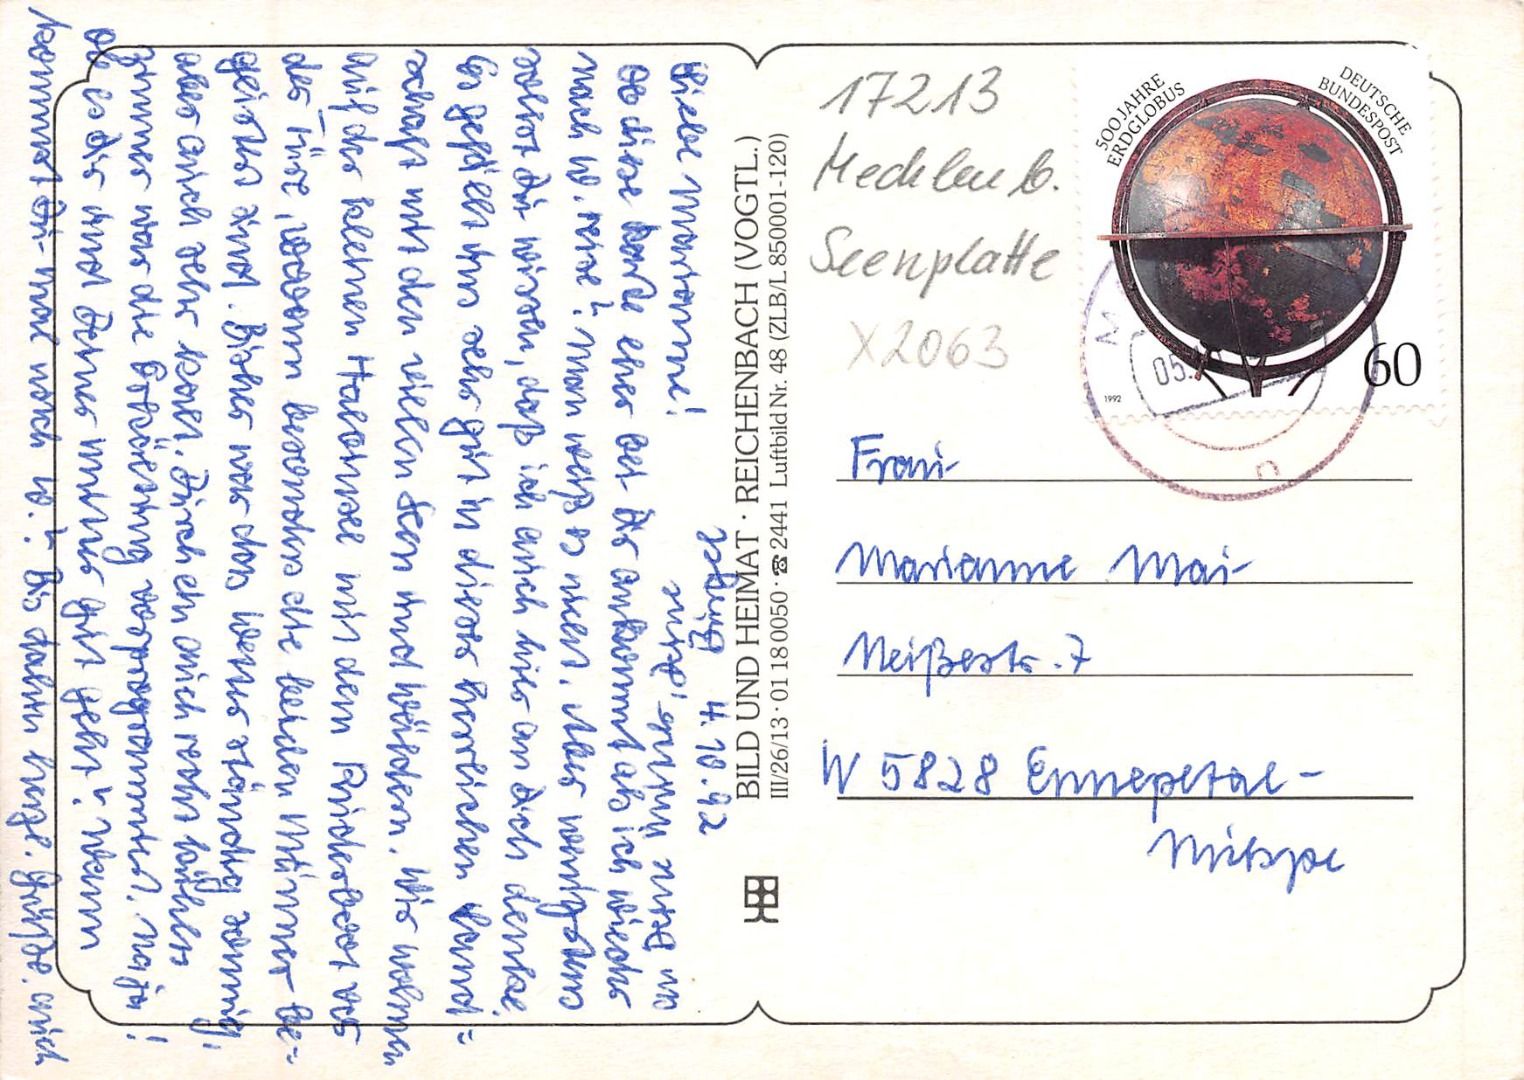 Leising 4.10.92
Liebe Marianne!
Ob diese Karte eher bei Dir ankommt als ich wieder
nach W. reise? Man weiß es nicht. Aber wenigstens
sollst Du wissen, daß ich auch hier an Dich denke.
Es gefällt uns sehr gut in dieser herrlichen Land=
schaft mit den vielen Seen und Wäldern. Wir wohnen
auf der kleinen Halbinsel mit dem Ruderboot vor
der Türe, wovon besonders die beiden Männer be-
geistert sind. Bisher war das Wetter ständig sonnig,
aber auch sehr kalt. Durch ein auch recht kühles
Zimmer war die Erkältung vorprogrammiert. Naja!
Ob es Dir und Deiner Mutter gut geht? Wann
kommst Du mal nach W.? Bis dahin herzl. Grüße. auch
von Bernd und
Deine
17213
Mecklenb.
Seenplatte
X2063
500 JAHRE
ERDGLOBUS
DEUTSCHE
BUNDESPOST
60
1992
05.
Frau
Marianne Mai
Neißestr. 7
W 5828 Ennepetal-
Milspe
BILD UND HEIMAT · REICHENBACH (VOGTL.)
III/26/13 · 01 18 0050 · ☎ 2441 Luftbild Nr. 48 (ZLB/L 850001-120)